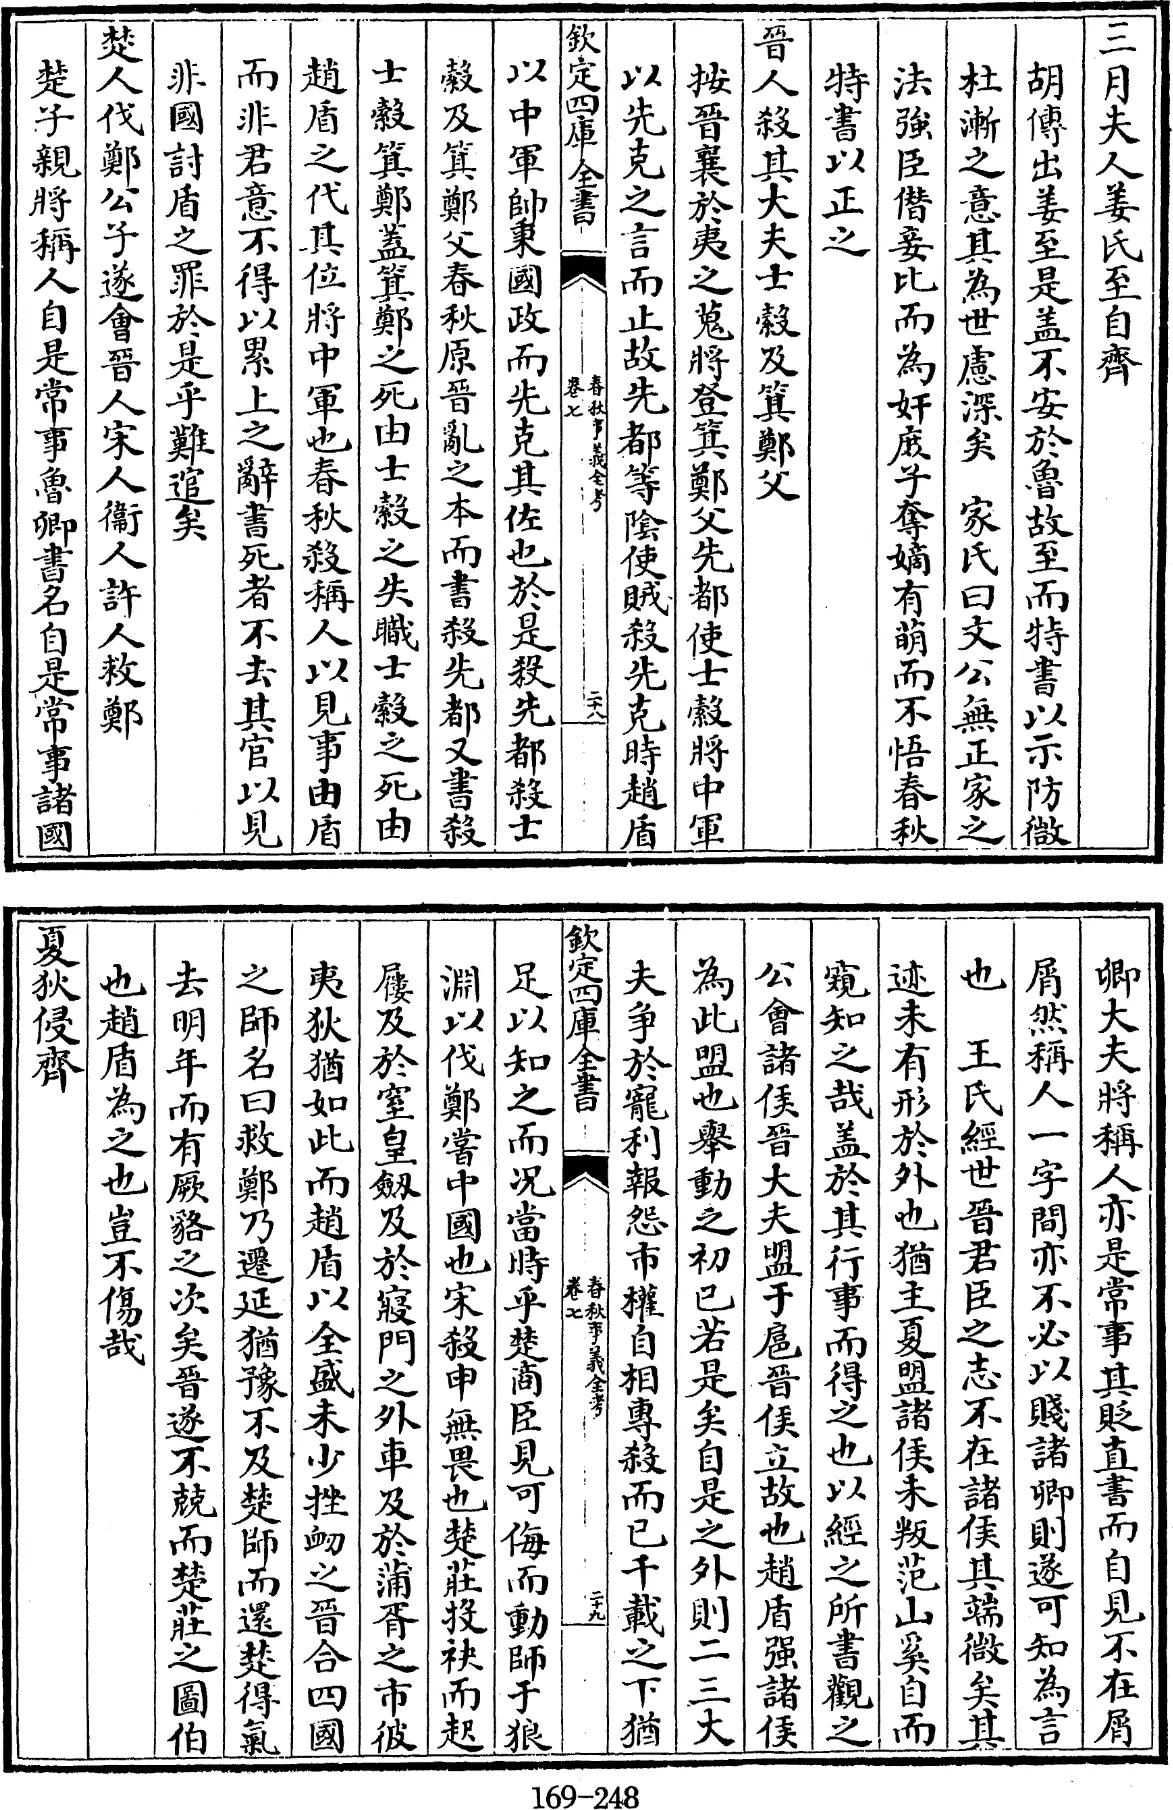 三月夫人姜氏至自齊
胡傳出姜至是盖不安於魯故至而特書以示防微
杜漸之意其為世慮深矣　家氏曰文公無正家之
法強臣僣妾比而為奸庻子奪嫡有萌而不悟春秋
特書以正之
晉人殺其大夫士縠及箕鄭父
按晉襄於夷之蒐將登箕鄭父先都使士縠將中軍
以先克之言而止故先都等陰使賊殺先克時趙盾
欽定四庫全書
春秋事義全考
卷七
二十八
以中軍帥秉國政而先克其佐也於是殺先都殺士
縠及箕鄭父春秋原晉亂之本而書殺先都又書殺
士縠箕鄭蓋箕鄭之死由士縠之失職士縠之死由
趙盾之代其位將中軍也春秋殺稱人以見事由盾
而非君意不得以累上之辭書死者不去其官以見
非國討盾之罪於是乎難逭矣
楚人伐鄭公子遂會晉人宋人衞人許人救鄭
楚子親將稱人自是常事魯卿書名自是常事諸國
卿大夫將稱人亦是常事其貶直書而自見不在屑
屑然稱人一字間亦不必以賤諸卿則遂可知為言
也　王氏經世晉君臣之志不在諸侯其端微矣其
迹未有形於外也猶主夏盟諸侯未叛范山奚自而
窺知之哉盖於其行事而得之也以經之所書觀之
公會諸侯晉大夫盟于扈晉侯立故也趙盾强諸侯
為此盟也舉動之初已若是矣自是之外則二三大
夫争於寵利報怨市權自相專殺而已千載之下猶
欽定四庫全書
春秋事義全考
卷七
二十九
足以知之而况當時乎楚商臣見可侮而動師于狼
淵以伐鄭嘗中國也宋殺申無畏也楚莊投袂而起
屨及於窒皇劔及於寢門之外車及於蒲胥之市彼
夷狄猶如此而趙盾以全盛未少挫衂之晉合四國
之師名曰救鄭乃遷延猶豫不及楚師而還楚得氣
去明年而有厥貉之次矣晉遂不兢而楚莊之圖伯
也趙盾為之也豈不傷哉
夏狄侵齊
169-248